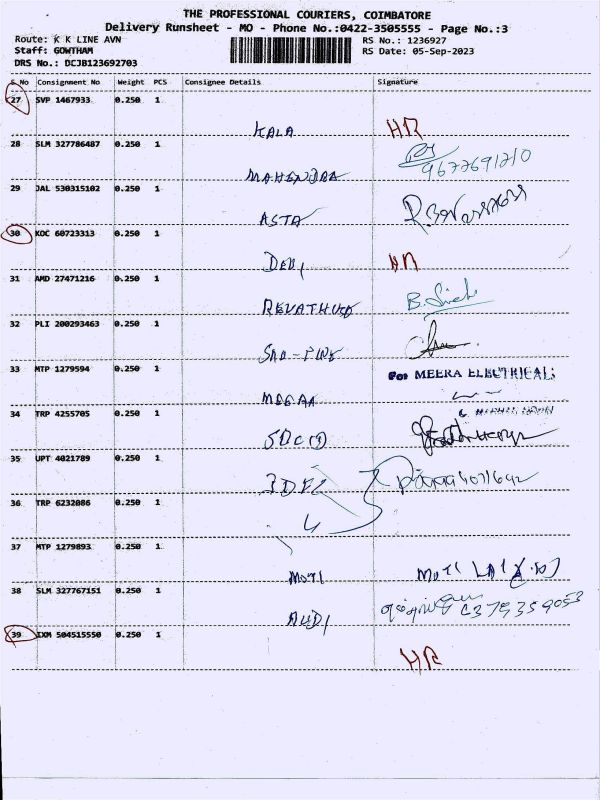 THE PROFESSIONAL COURIERS, COIMBATORE
Delivery Runsheet - MO - Phone No.:0422-3505555 - Page No.:3
Route: K K LINE AVN
RS No.: 1236927
Staff: GOWTHAM
RS Date: 05-Sep-2023
DRS No.: DCJB123692703
S.No Consignment No Weight PCS Consignee Details Signature
27 SVP 1467933 0.250 1
KALA HR
28 SLM 327786487 0.250 1
MAHENDRA 9677691210
29 JAL 530315102 0.250 1
ASTA
30 KOC 60723313 0.250 1
DEVI HR
31 AMD 27471216 0.250 1
REVATHI
32 PLI 200293463 0.250 1
33 MTP 1279594 0.250 1
For MEERA ELECTRICALS
34 TRP 4255705 0.250 1
35 UPT 4021789 0.250 1
36 TRP 6232086 0.250 1
37 MTP 1279893 0.250 1
MOTI MOTI LAL
38 SLM 327767151 0.250 1
AUDI
39 IXM 504515550 0.250 1
HR